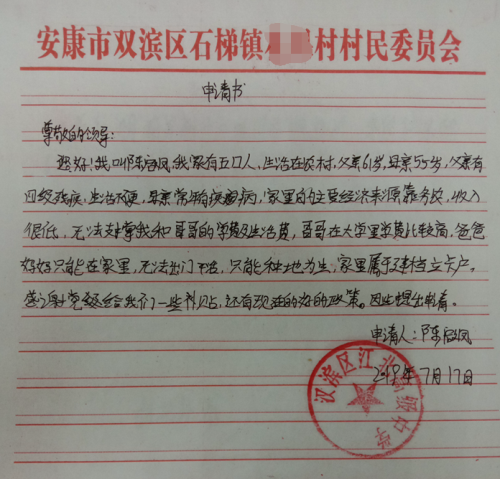 安康市双滨区石梯镇 村村民委员会
申请书
尊敬的领导:
您好!我叫陈启凤,我家有五口人,生活在农村,父亲61岁,母亲55岁,父亲有
四级残疾,生活不便,母亲常年疾病,家里的主要经济来源靠务农,收入
很低,无法支撑我和哥哥的学费及生活费,哥哥在大学里学费比较高,爸爸
妈妈只能在家里,无法出门干活,只能种地为生,家里属于建档立卡户。
感谢党给我们一些补贴,还有现在的好的政策。因此提出申请。
申请人:陈启凤
2018年7月17日
汉滨区江北高级中学